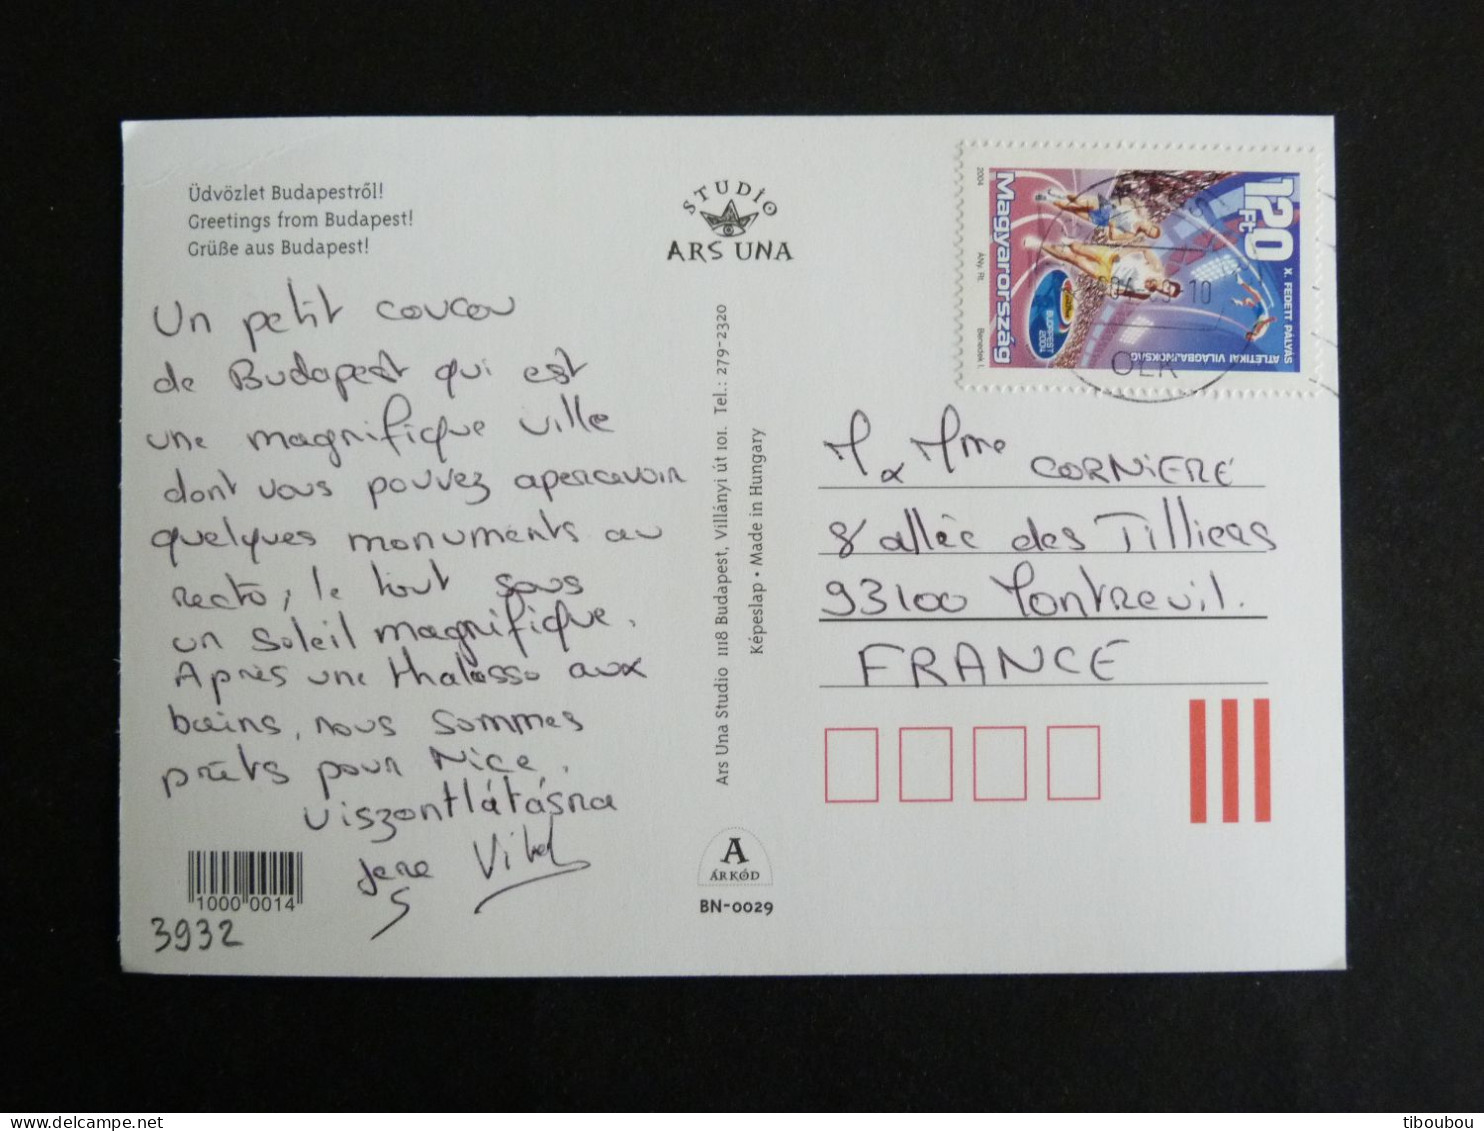 Üdvözlet Budapestről!
Greetings from Budapest!
Grüße aus Budapest!
Un petit coucou
de Budapest qui est
une magnifique ville
dont vous pouvez apercevoir
quelques monuments au
recto, le tout sous
un soleil magnifique.
Après une thalasso aux
bains, nous sommes
prêts pour Nice.
viszontlátásra
1000 0014
3932
STUDIO
ARS UNA
Ars Una Studio 1118 Budapest, Villányi út 101. Tel.: 279-2320
Képeslap • Made in Hungary
A
ÁRKÓD
BN-0029
2004
Magyarország
ANy. Rt.
Benedek I.
BUDAPEST
2004
120
Ft
X. FEDETT PÁLYÁS
ATLÉTIKAI VILÁGBAJNOKSÁG
10
OLK
M & Mme CORNIERE
8 allée des Tilliers
93100 Montreuil.
FRANCE
tiboubou